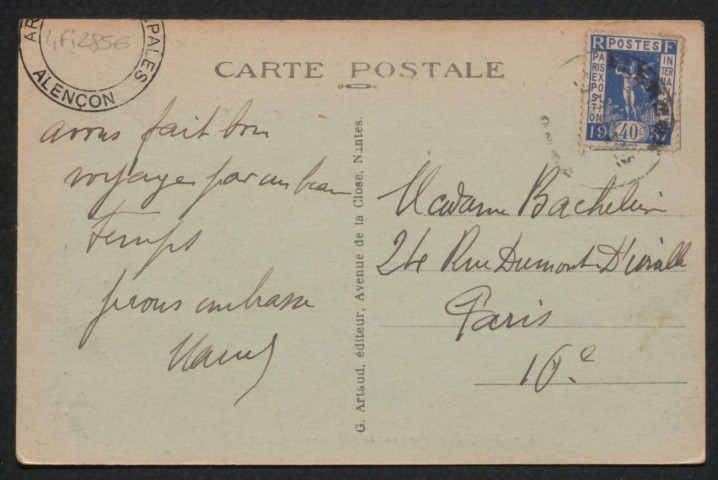 AR
PALES
4fi2856
ALENÇON
CARTE POSTALE
R POSTES F
PARIS EXPOSITION
INTERNA
1937
40c
avons fait bon
voyage par un beau
temps
je vous embrasse
G. Artaud, éditeur, Avenue de la Close, Nantes.
Madame Bachelier
24 Rue Dumont D'Urville
Paris
16e